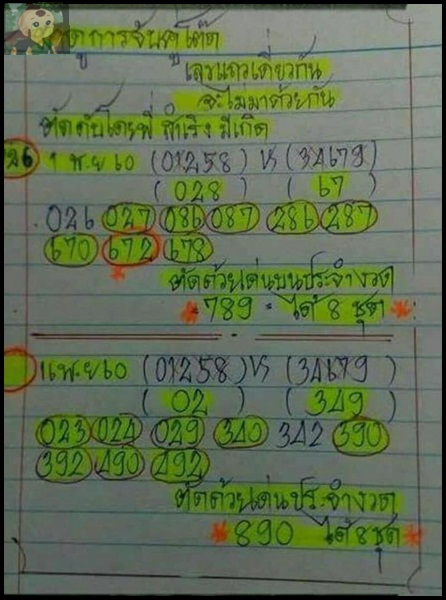 ดูการจับคู่โต๊ด
เลขแถวเดี่ยวกัน
จะไม่มาด้วยกัน
ตัดดับโดยพี่ สำเริง มีเกิด
26 1 พ.ย 60 (01258) VS (34679)
(028) (67)
026 027 086 087 286 287
670 672 678
ตัดด้วยเด่นบนประจำงวด
789 = ได้ 8 ชุด
1 พ.ย 60 (01258) VS (34679)
(02) (349)
023 024 029 340 342 390
392 490 492
ตัดด้วยเด่นประจำงวด
890 ได้ 8 ชุด